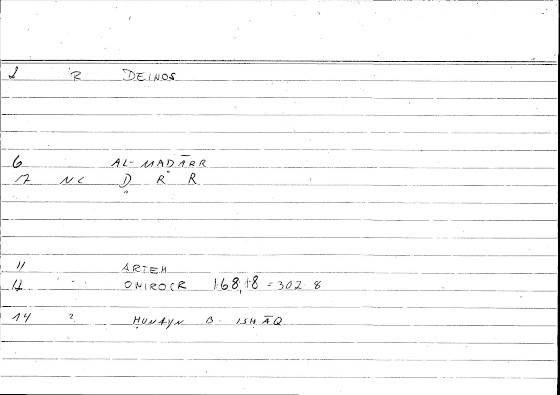 2 R DEINOS
6 AL-MAḌĀRR
7 NC Ḍ R R
11 ARTEM
12 ONIROCR 168,18 = 302 8
14 ḤUNAYN B. ISḤĀQ